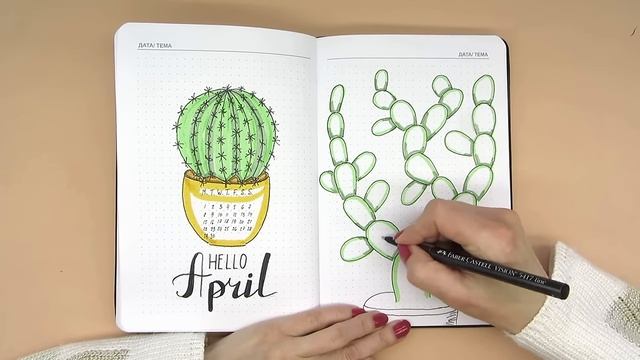 ДАТА/ ТЕМА
ДАТА/ ТЕМА
M T W T F S S
1 2 3 4 5 6 7
8 9 10 11 12 13 14
15 16 17 18 19 20 21
22 23 24 25 26 27 28
29 30
HELLO
April
FABER CASTELL VISION 5417 fine